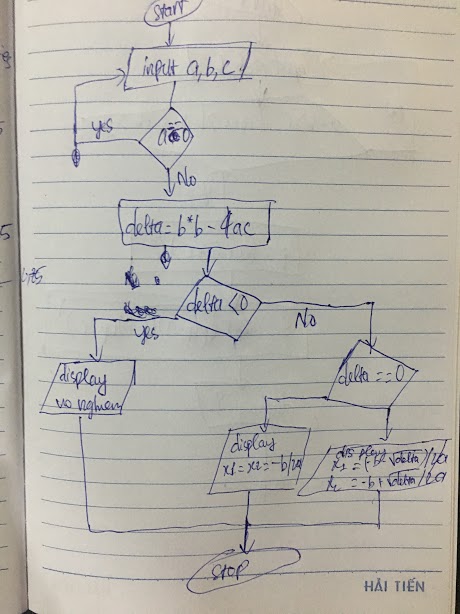 Start
input a,b,c.
yes
a==0
No
delta = b*b - 4ac
delta < 0
yes
No
display
vo nghiem
delta == 0
display
x1 = x2 = -b/2a
display
x1 = (-b - √delta)/2a
x2 = -b + √delta/2a
STOP
HẢI TIẾN